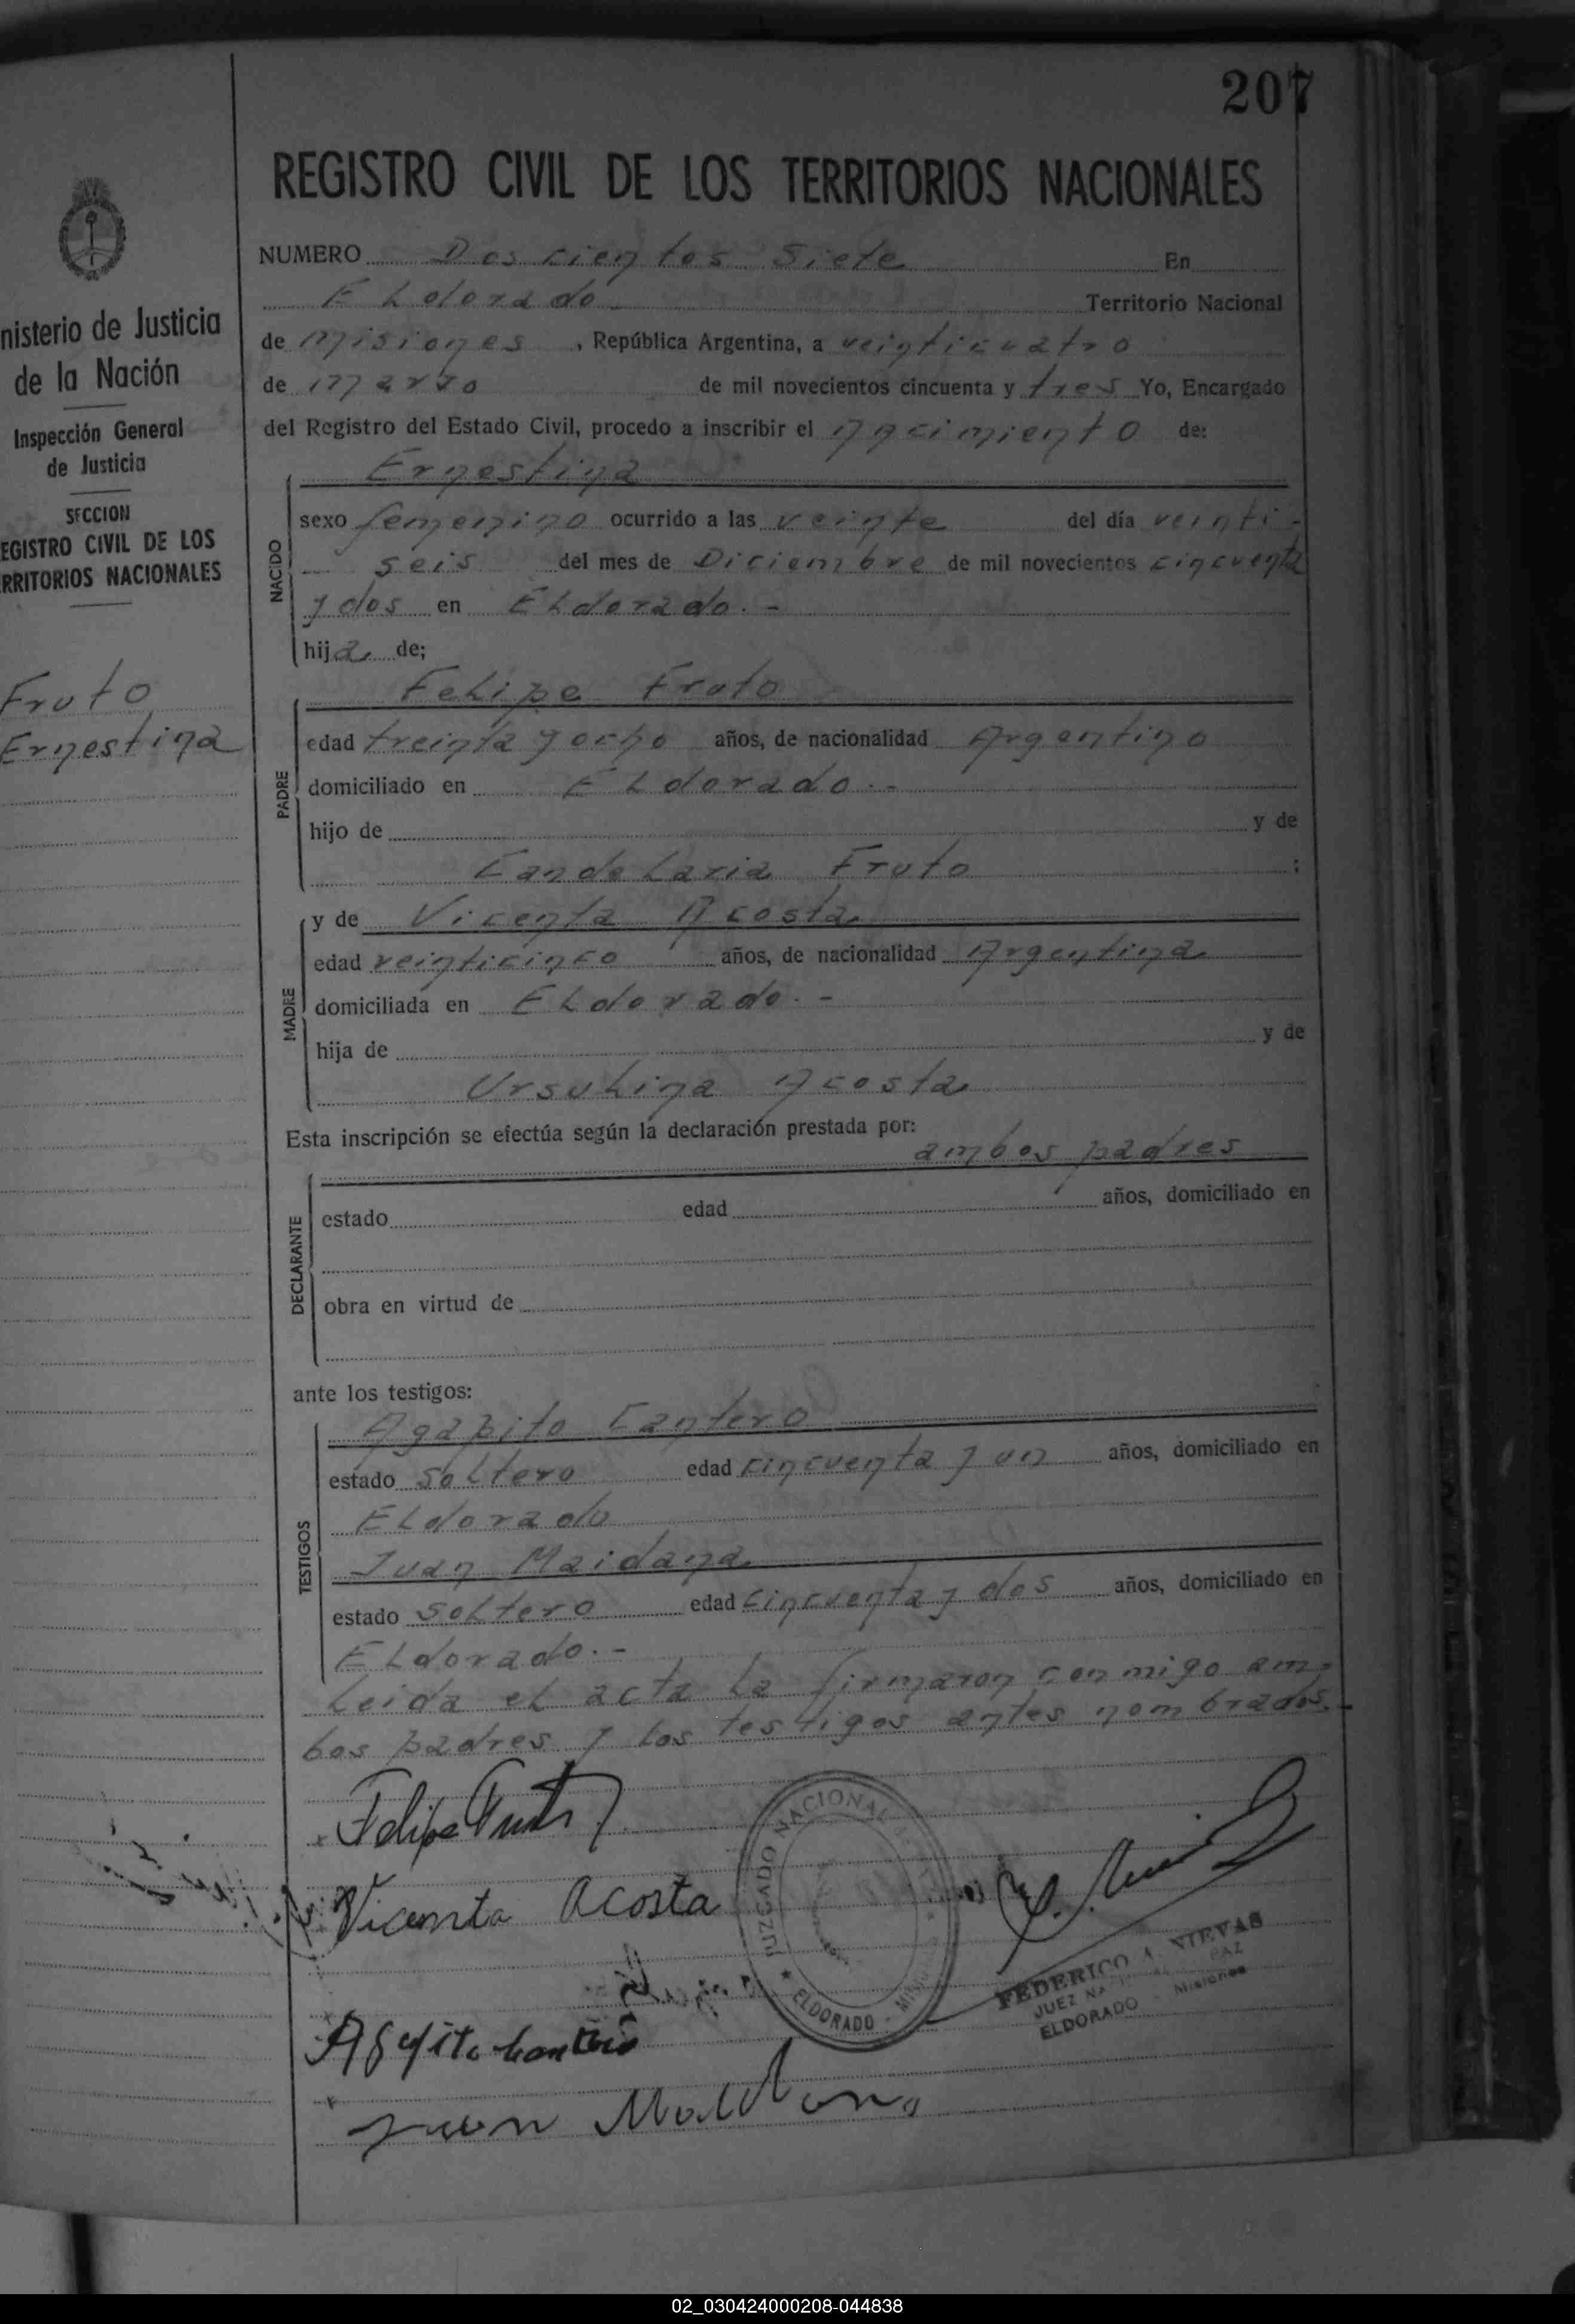 207
REGISTRO CIVIL DE LOS TERRITORIOS NACIONALES
NUMERO Doscientos Siete En
ELdorado Territorio Nacional
de Misiones , República Argentina, a veinticuatro
de marzo de mil novecientos cincuenta y tres Yo, Encargado
del Registro del Estado Civil, procedo a inscribir el nacimiento de:
Ernestina
NACIDO
sexo femenino ocurrido a las veinte del día veinti-
seis del mes de Diciembre de mil novecientos cincuenta
y dos en ELdorado.-
hija de;
Felipe Fruto
PADRE
edad treinta y ocho años, de nacionalidad Argentino
domiciliado en ELdorado.-
hijo de y de
Candelaria Fruto ;
MADRE
y de Vicenta Acosta
edad veinticinco años, de nacionalidad Argentina
domiciliada en ELdorado.-
hija de y de
Ursulina Acosta
Esta inscripción se efectúa según la declaración prestada por:
ambos padres
DECLARANTE
estado edad años, domiciliado en
obra en virtud de
ante los testigos:
TESTIGOS
Agapito Cantero
estado soltero edad cincuenta y un años, domiciliado en
ELdorado
Juan Maidana
estado soltero edad cincuenta y dos años, domiciliado en
ELdorado.-
Leida el acta la firmaron conmigo am-
bos padres y los testigos antes nombrados.-
Felipe Fruto
Vicenta Acosta
JUZGADO NACIONAL
ELDORADO - MISIONES
FEDERICO A. NIEVAS
JUEZ NACIONAL PAZ
ELDORADO - Misiones
Juan
nisterio de Justicia
de la Nación
Inspección General
de Justicia
SECCION
EGISTRO CIVIL DE LOS
RRITORIOS NACIONALES
Fruto
Ernestina
02_030424000208-044838